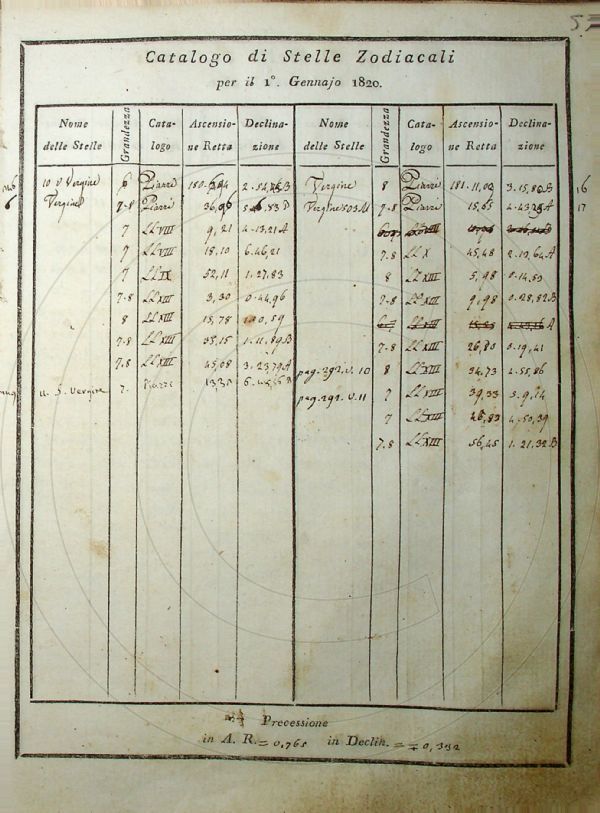 Catalogo di Stelle Zodiacali
per il 1°. Gennajo 1820.
Nome delle Stelle Grandezza Cata-logo Ascensio-ne Retta Declina-zione Nome delle Stelle Grandezza Cata-logo Ascensio-ne Retta Declina-zione
10 Vergine 6 Piazzi Vergine 8 Piazzi 181. 11,02 3. 15,80 B 16
Vergine 7-8 Piazzi Vergine 503 M 7-8 Piazzi 15,65 17
7 LL VIII 9,21 2. 13,21 A
7 LL VIII 18,10 6. 46,21 7.8 LL X 45,48 2. 19,64 A
7 LL IX 52,11 1. 27,83 8 LL XIII 5,98 0. 14,50
7.8 LL XIII 3,30 0. 44,96 7-8 LL XIII 9,98 0. 28,82 B
8 LL XIII 15,78 1. 0,59
7.8 LL XIII 38,15 1. 11,89 B 7-8 LL XIII 26,80 0. 19,41
7.8 LL XIII 45,08 3. 23,79 A pag. 392. V. 10 8 LL XIII 34,73 2. 55,86
11. S. Vergine 7. pag. 392. V. 11 7 LL XIII 39,33
7 LL XIII 4. 50,39
7.8 LL XIII 56,45 1. 21,32 B
Precessione
in A. R. = 0,765 in Declin. = ∓ 0,332